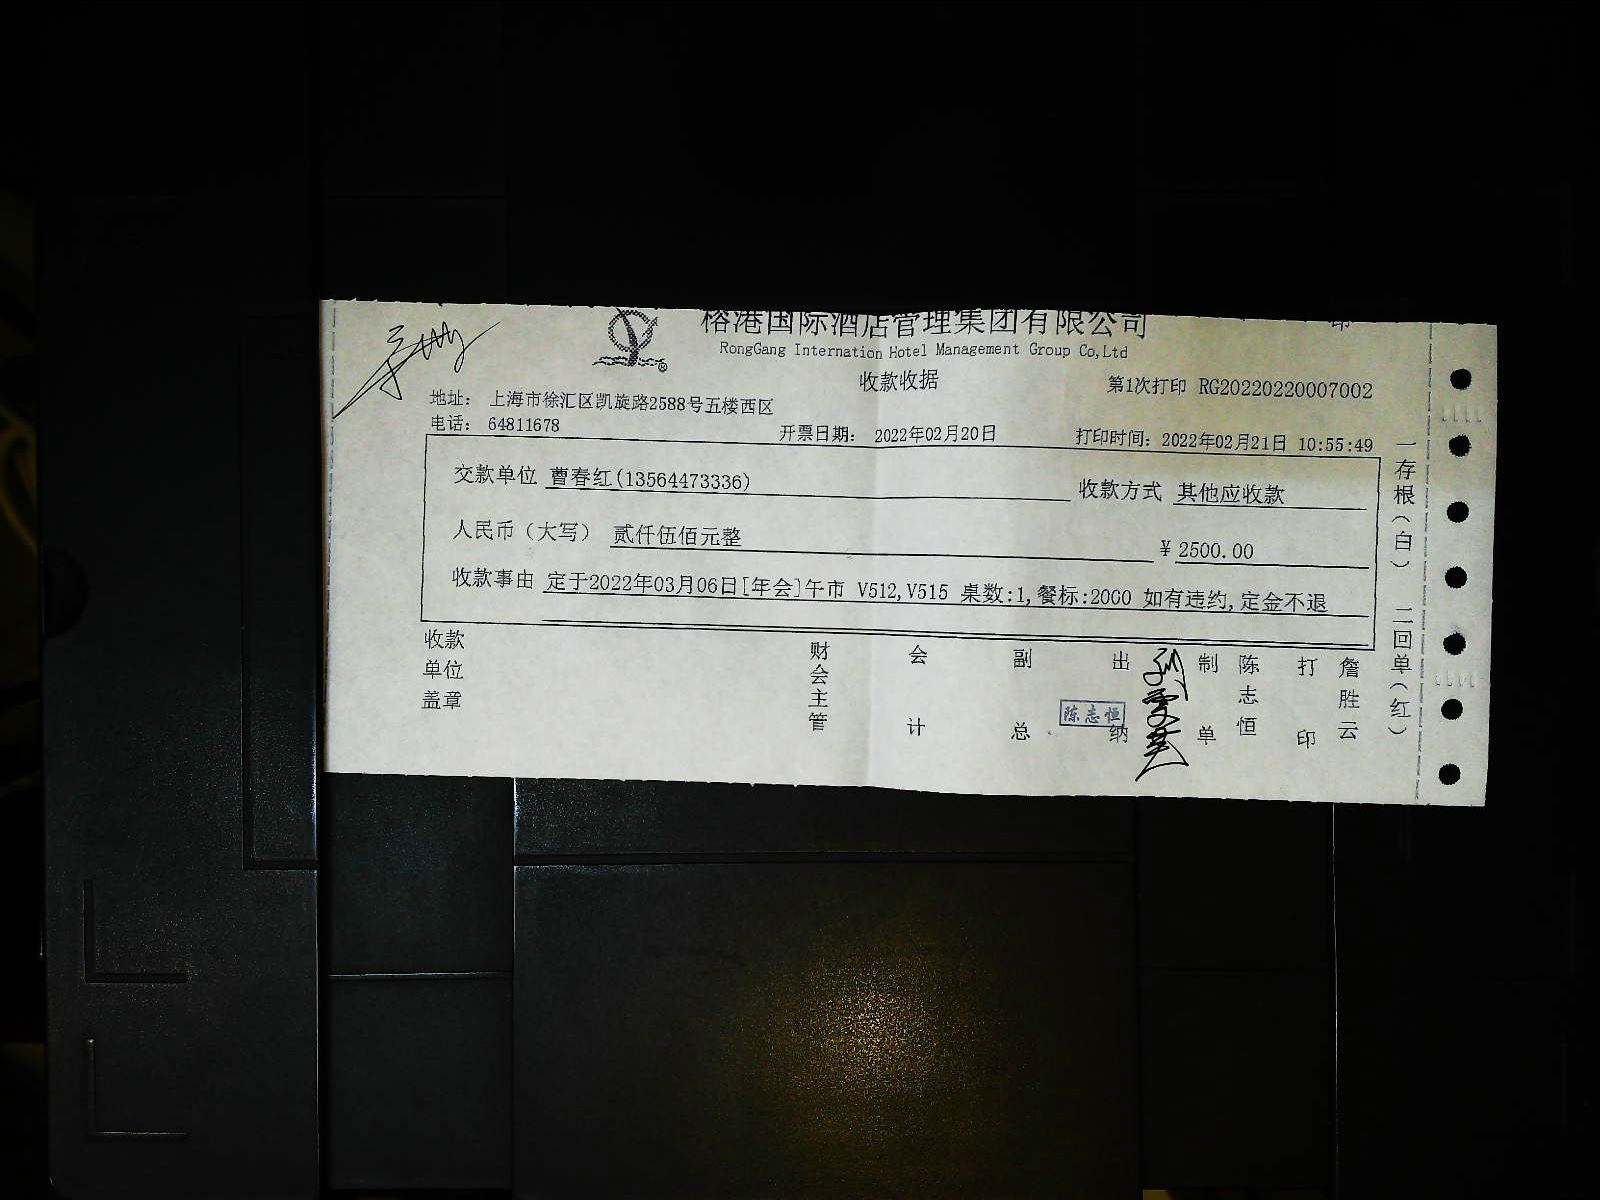 榕港国际酒店管理集团有限公司
RongGang Internation Hotel Management Group Co,Ltd
收款收据
第1次打印 RG20220220007002
地址： 上海市徐汇区凯旋路2588号五楼西区
电话： 64811678
开票日期： 2022年02月20日
打印时间：2022年02月21日 10:55:49
交款单位 曹春红(13564473336)
收款方式 其他应收款
人民币（大写） 贰仟伍佰元整
￥2500.00
收款事由 定于2022年03月06日[年会]午市 V512,V515 桌数:1,餐标:2000 如有违约,定金不退
收款单位盖章
财会主管
会计
副总
出纳
陈志恒
制单
陈志恒
打印
詹胜云
一存根（白） 二回单（红）